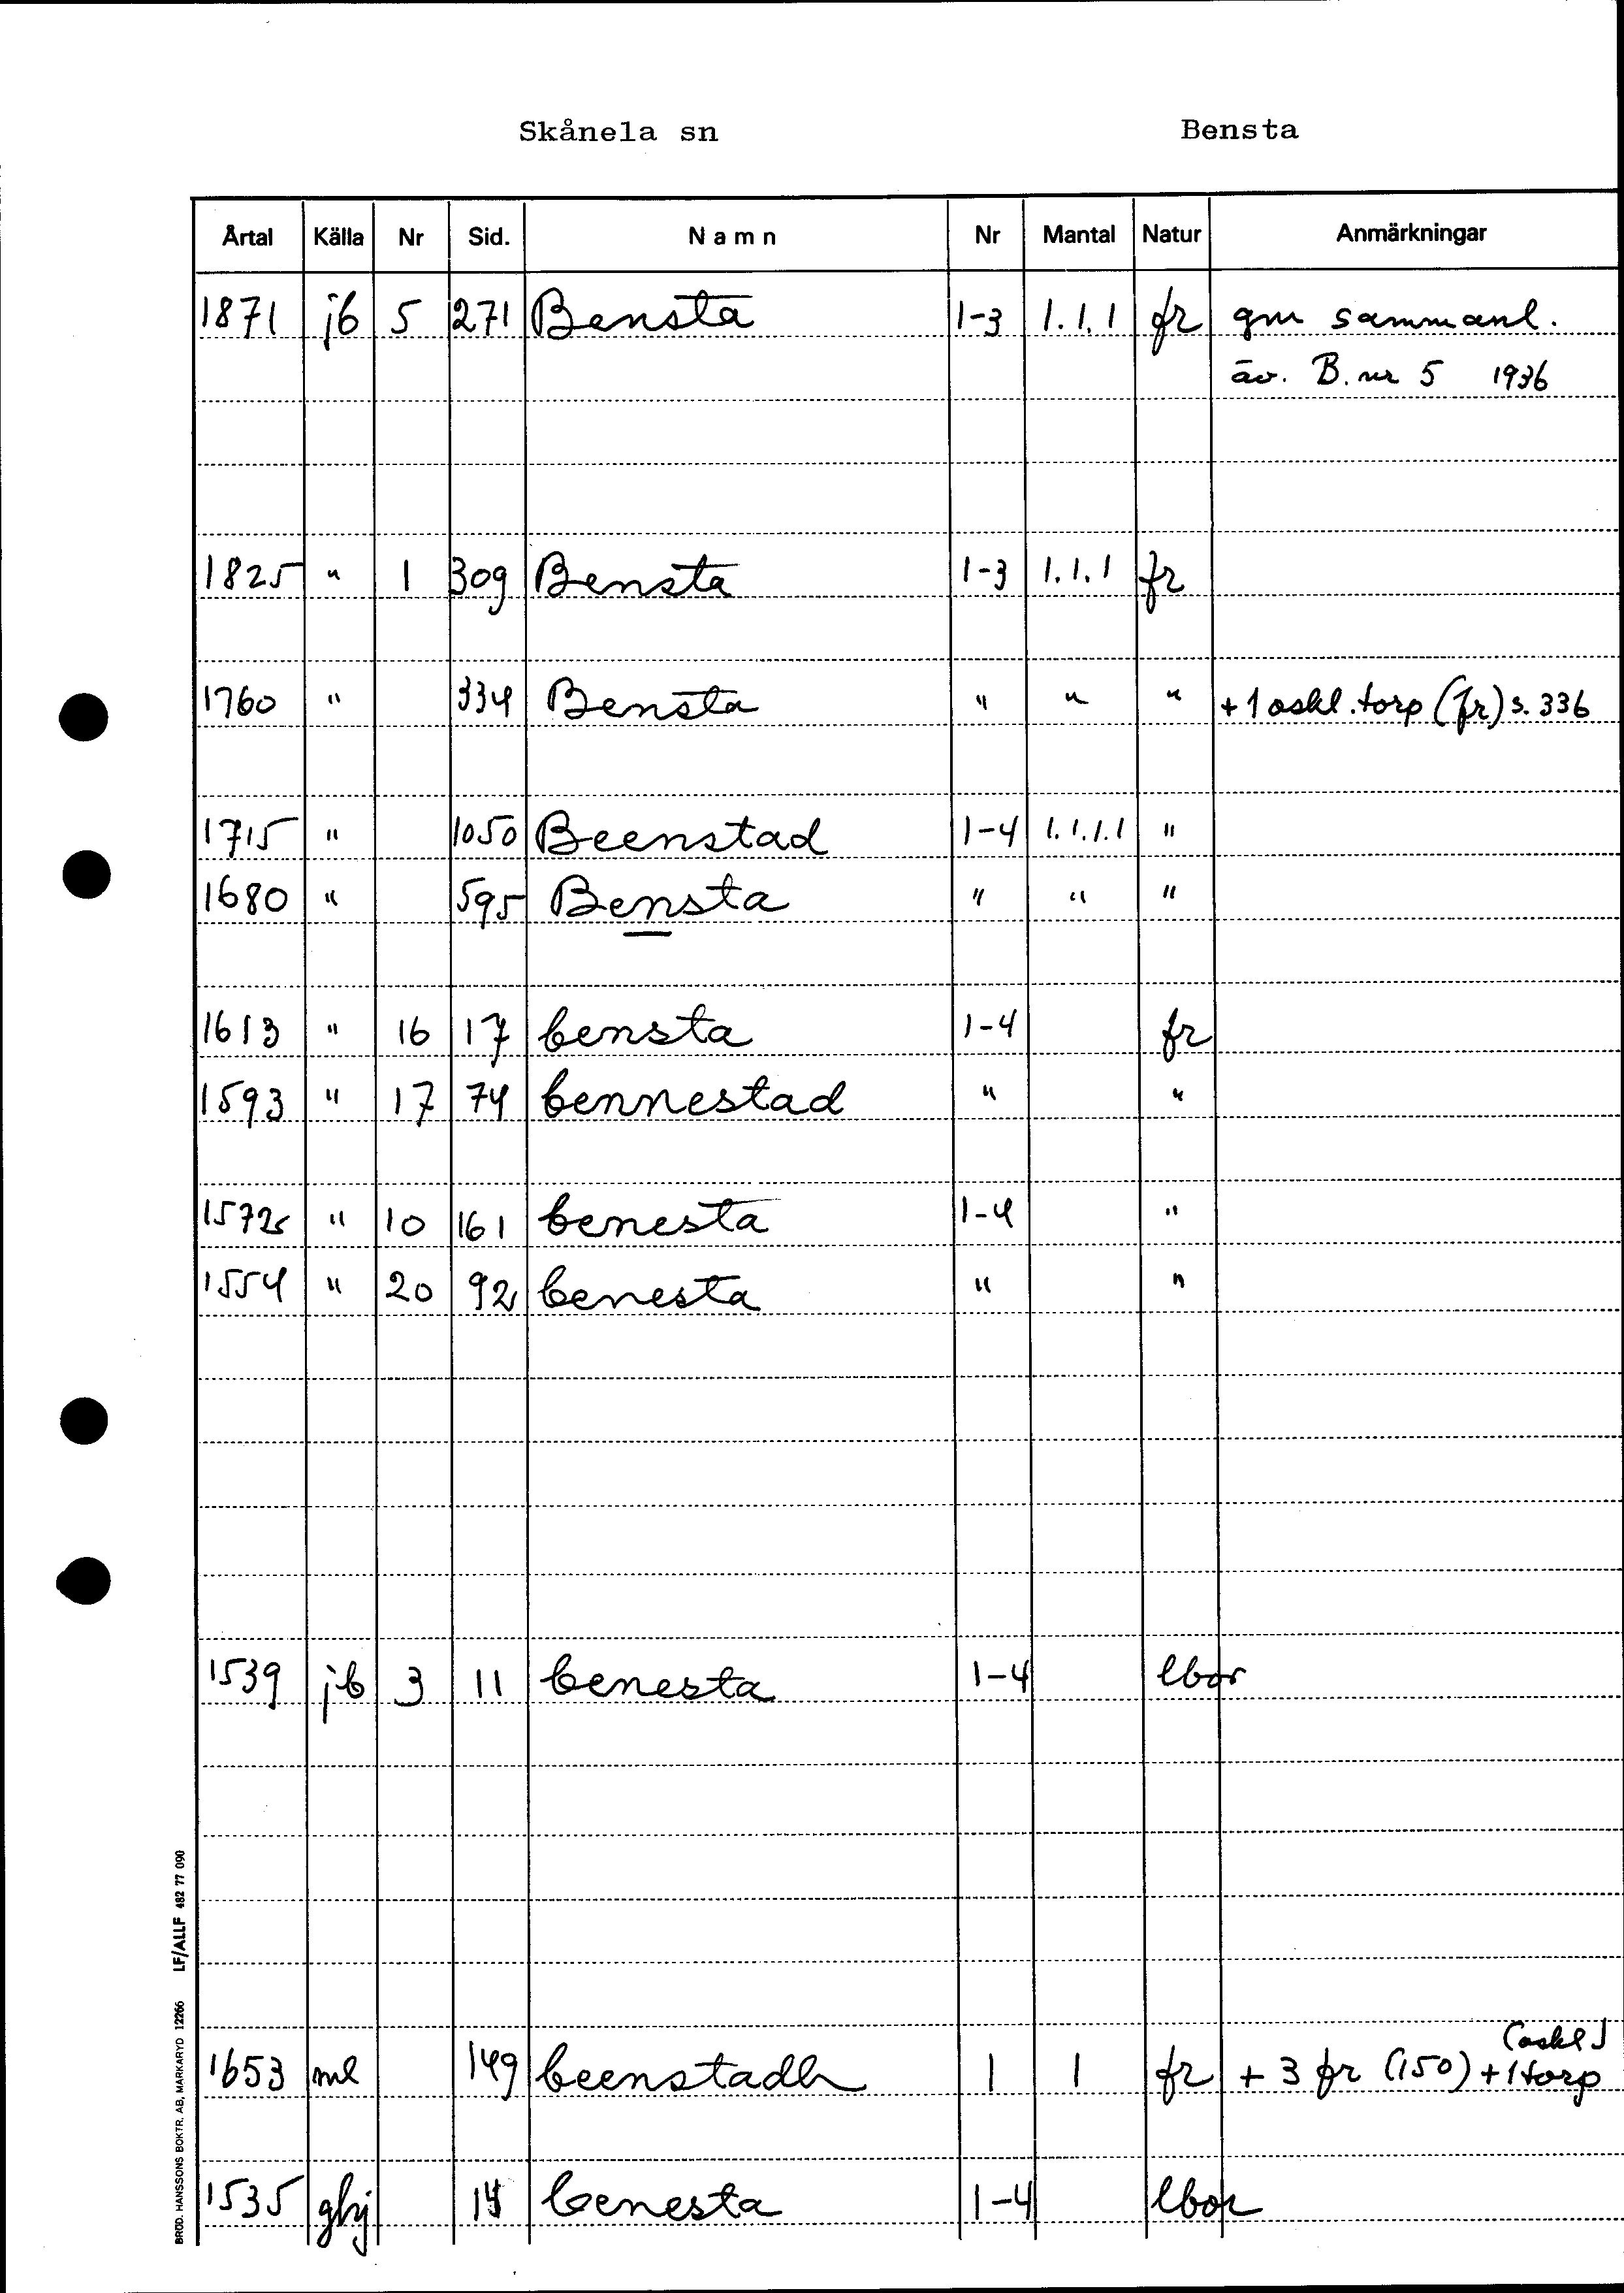 Skånela sn Bensta
Årtal Källa Nr Sid. Namn Nr Mantal Natur Anmärkningar
1871 jb 5 271 Bensta 1-3 1.1.1 fr gm sammanl.
äv. B. nr 5 1936
1825 " 1 309 Bensta 1-3 1.1.1 fr
1760 " 334 Bensta " " " + 1 oskl. torp (fr) s. 336
1715 " 1050 Beenstad 1-4 1.1.1.1 "
1680 " 595 Bensta " " "
1613 " 16 17 bensta 1-4 fr
1593 " 17 74 bennestad " "
1572 " 10 161 benesta 1-4 "
1554 " 20 92 benesta " "
1539 jb 3 11 benesta 1-4 lbor
(oskl)
1653 ml 149 beenstadh 1 1 fr + 3 fr (150) + 1 torp
1535 ghj benesta 1-4 lbor
BRÖD. HANSSONS BOKTR. AB, MARKARYD 12266 LF/ALLF 482 77 090